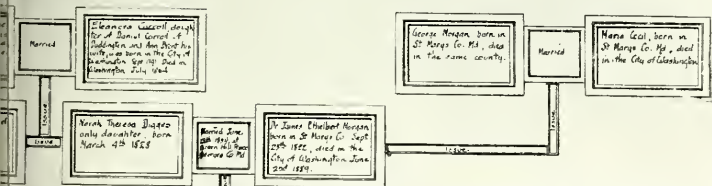 Married
Eleanora Carroll daugh
ter of Daniel Carroll of
Duddington and Ann Brent his
wife, was born in the City of
Washington Sept 1791 Died in
Washington July 1864
George Morgan born in
St Marys Co. Md, died
in the same county.
Married
Maria Cecil, born in
St Marys Co. Md, died
in the City of Washington
Issue
Norah Theresa Digges
only daughter, born
March 4th
Married June
at
Green Hill Prince
Georges Co Md
Dr James Ethelbert Morgan
born in St Marys Co Sept
25th 1822, died in the
City of Washington June
1889.
Issue
Issue